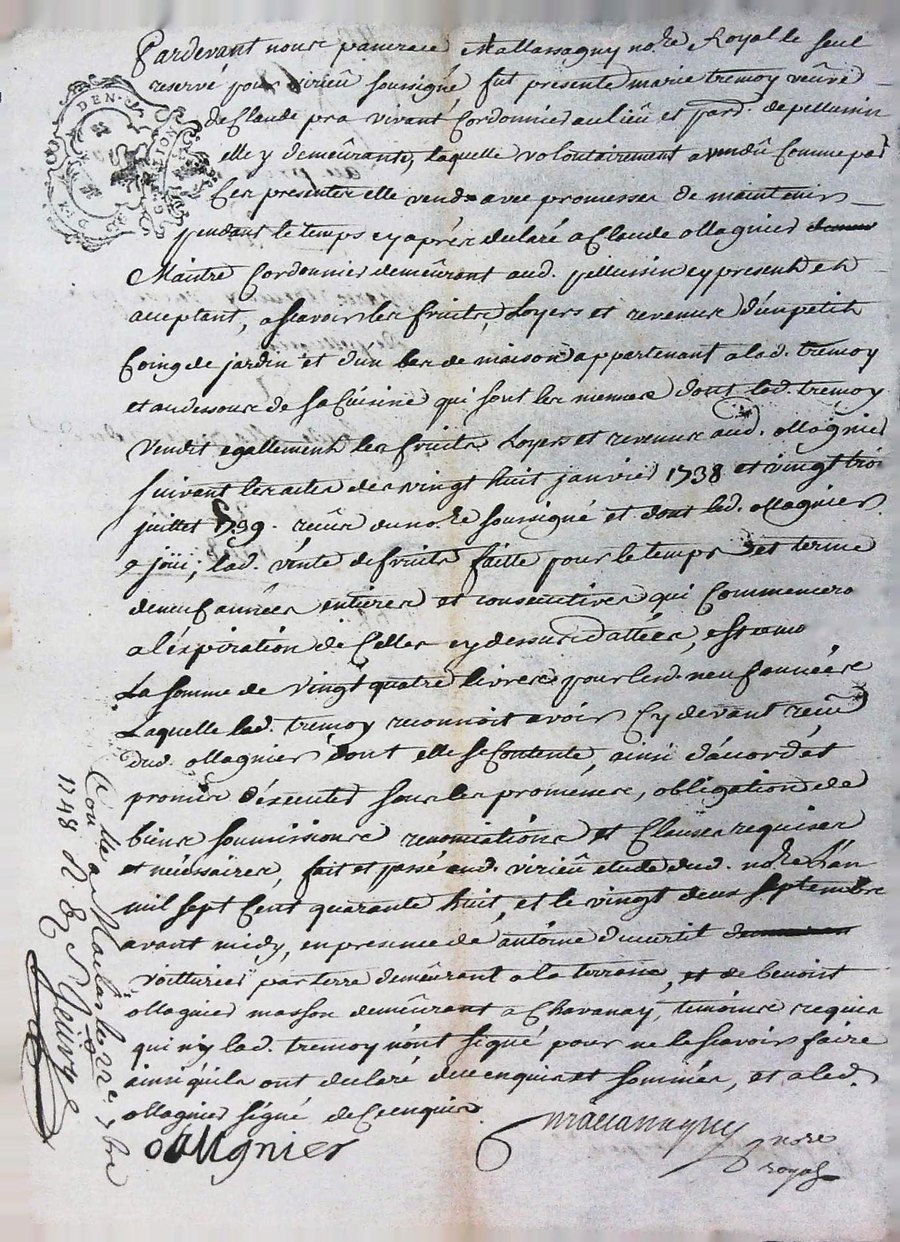 Pardevant nous pancrace Mallassagny no.re Royal le seul
reservé pour virieû soussigné fut presente marie tremoy veûve
de Claude pra vivant Cordonnier au lieû et parr. de pellussin
elle y demeûrante, laquelle volontairement a vendû Comme par
Ces presentes elle vend avec promesses de maintenir
pendant le temps cy après declaré a Claude ollagnier
Maistre Cordonnier demeûrant aud. pellussin cy present et
acceptant, a scavoir les fruits, loyers et revenus d'un petit
Coing de jardin et d'un bas de maison appartenant a lad. tremoy
et au dessous de sa Cuisine qui sont les memes dont lad. tremoy
vendit egallement les fruits loyers et revenus aud. ollagnier
suivant les actes des vingt huit janvier 1738 et vingt trois
juillet 1739. reçûs du no.re soussigné et dont led. ollagnier
a joüi; lad. vente de fruits faitte pour le temps et terme
de neuf années entieres et consecutives qui Commencera
a l'expiration de Celles cy dessus dattées, et
La somme de vingt quatre livres pour lesd. neuf années
Laquelle lad. tremoy reconnoit avoir Cy devant reçû
dud. ollagnier dont elle se Contente, ainsi d'acord et
promis d'executer sous les promesses, obligation de
biens soumissions renonciations et Clauses requises
et nécessaires, fait et passé aud. virieû etude dud. no.re l'an
mil sept Cent quarante huit, et le vingt deux septembre
avant midy, en presence de antoine ducurtil
voiturier par terre demeûrant a la terrasse, et de benoist
ollagnier masson demeûrant a Chavanay, temoins requis
qui n'y lad. tremoy n'ont signé pour ne le scavoir faire
ainsi qu'ils ont declaré de ce enquis et sommés, et a led.
ollagnier signé de Ce enquis
ollAgnier
Mallassagny
no re
royal
Con.lle a Maclas le 22e 7bre
1748 R